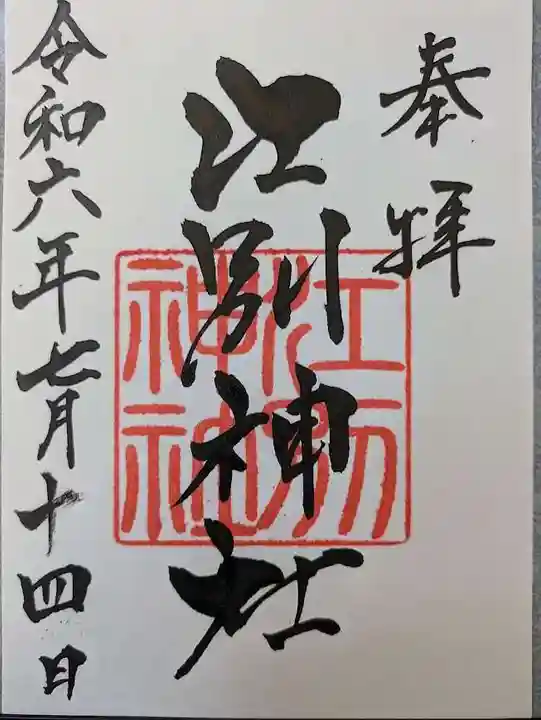 奉拝
江別神社
江別神社
令和六年七月十四日